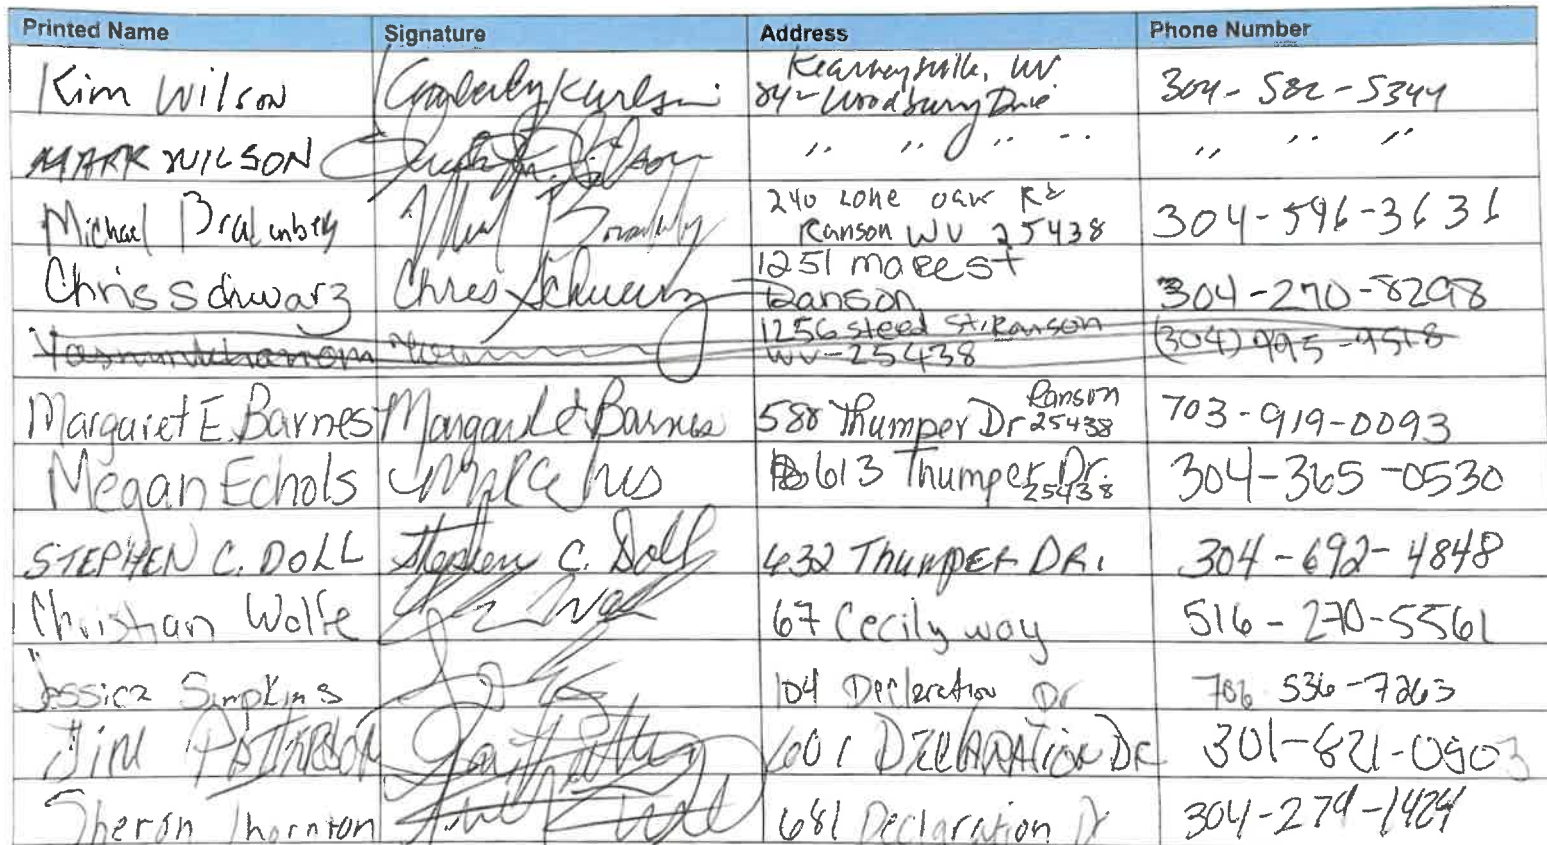 Printed Name Signature Address Phone Number
Kim Wilson Kearneysville, WV
842 Woodbury Drive 304-582-5344
MARK WILSON " " " " " " "
Michael 240 Lone Oak Rd
Ranson WV 25438 304-596-3636
Chris Schwarz Chris Schwarz 1251 Maple St
Ranson 304-270-8298
1256 Steed St, Ranson
WV-25438 (304) 995-9518
Margaret E. Barnes Margaret E Barnes 588 Thumper Dr Ranson
25438 703-919-0093
Megan Echols 613 Thumper Dr.
25438 304-365-0530
STEPHEN C. DOLL Stephen C. Doll 632 THUMPER DR. 304-692-4848
Christian Wolfe 67 Cecily way 516-270-5561
Jessica Simpkins 104 Declaration Dr 536-7263
601 DECLARATION DR 301-821-0903
Theron Thornton 681 Declaration Dr 304-279-1424